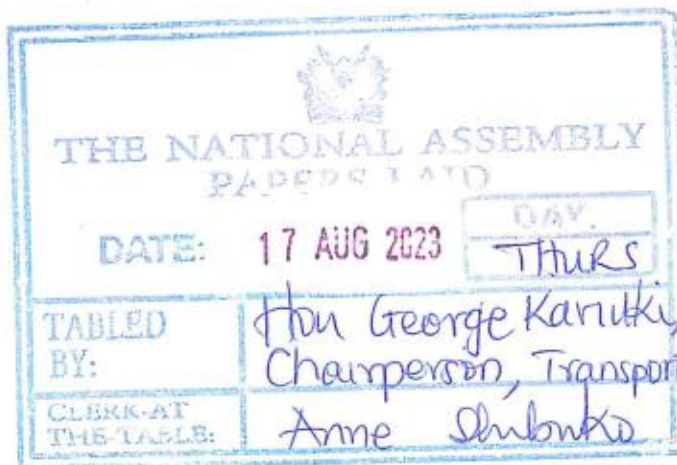 THE NATIONAL ASSEMBLY
PAPERS LAID
DATE: 17 AUG 2023
DAY.
THURS
TABLED BY:
Hon George Kariuki,
Chairperson, Transpor
CLERK-AT
THE-TABLE:
Anne